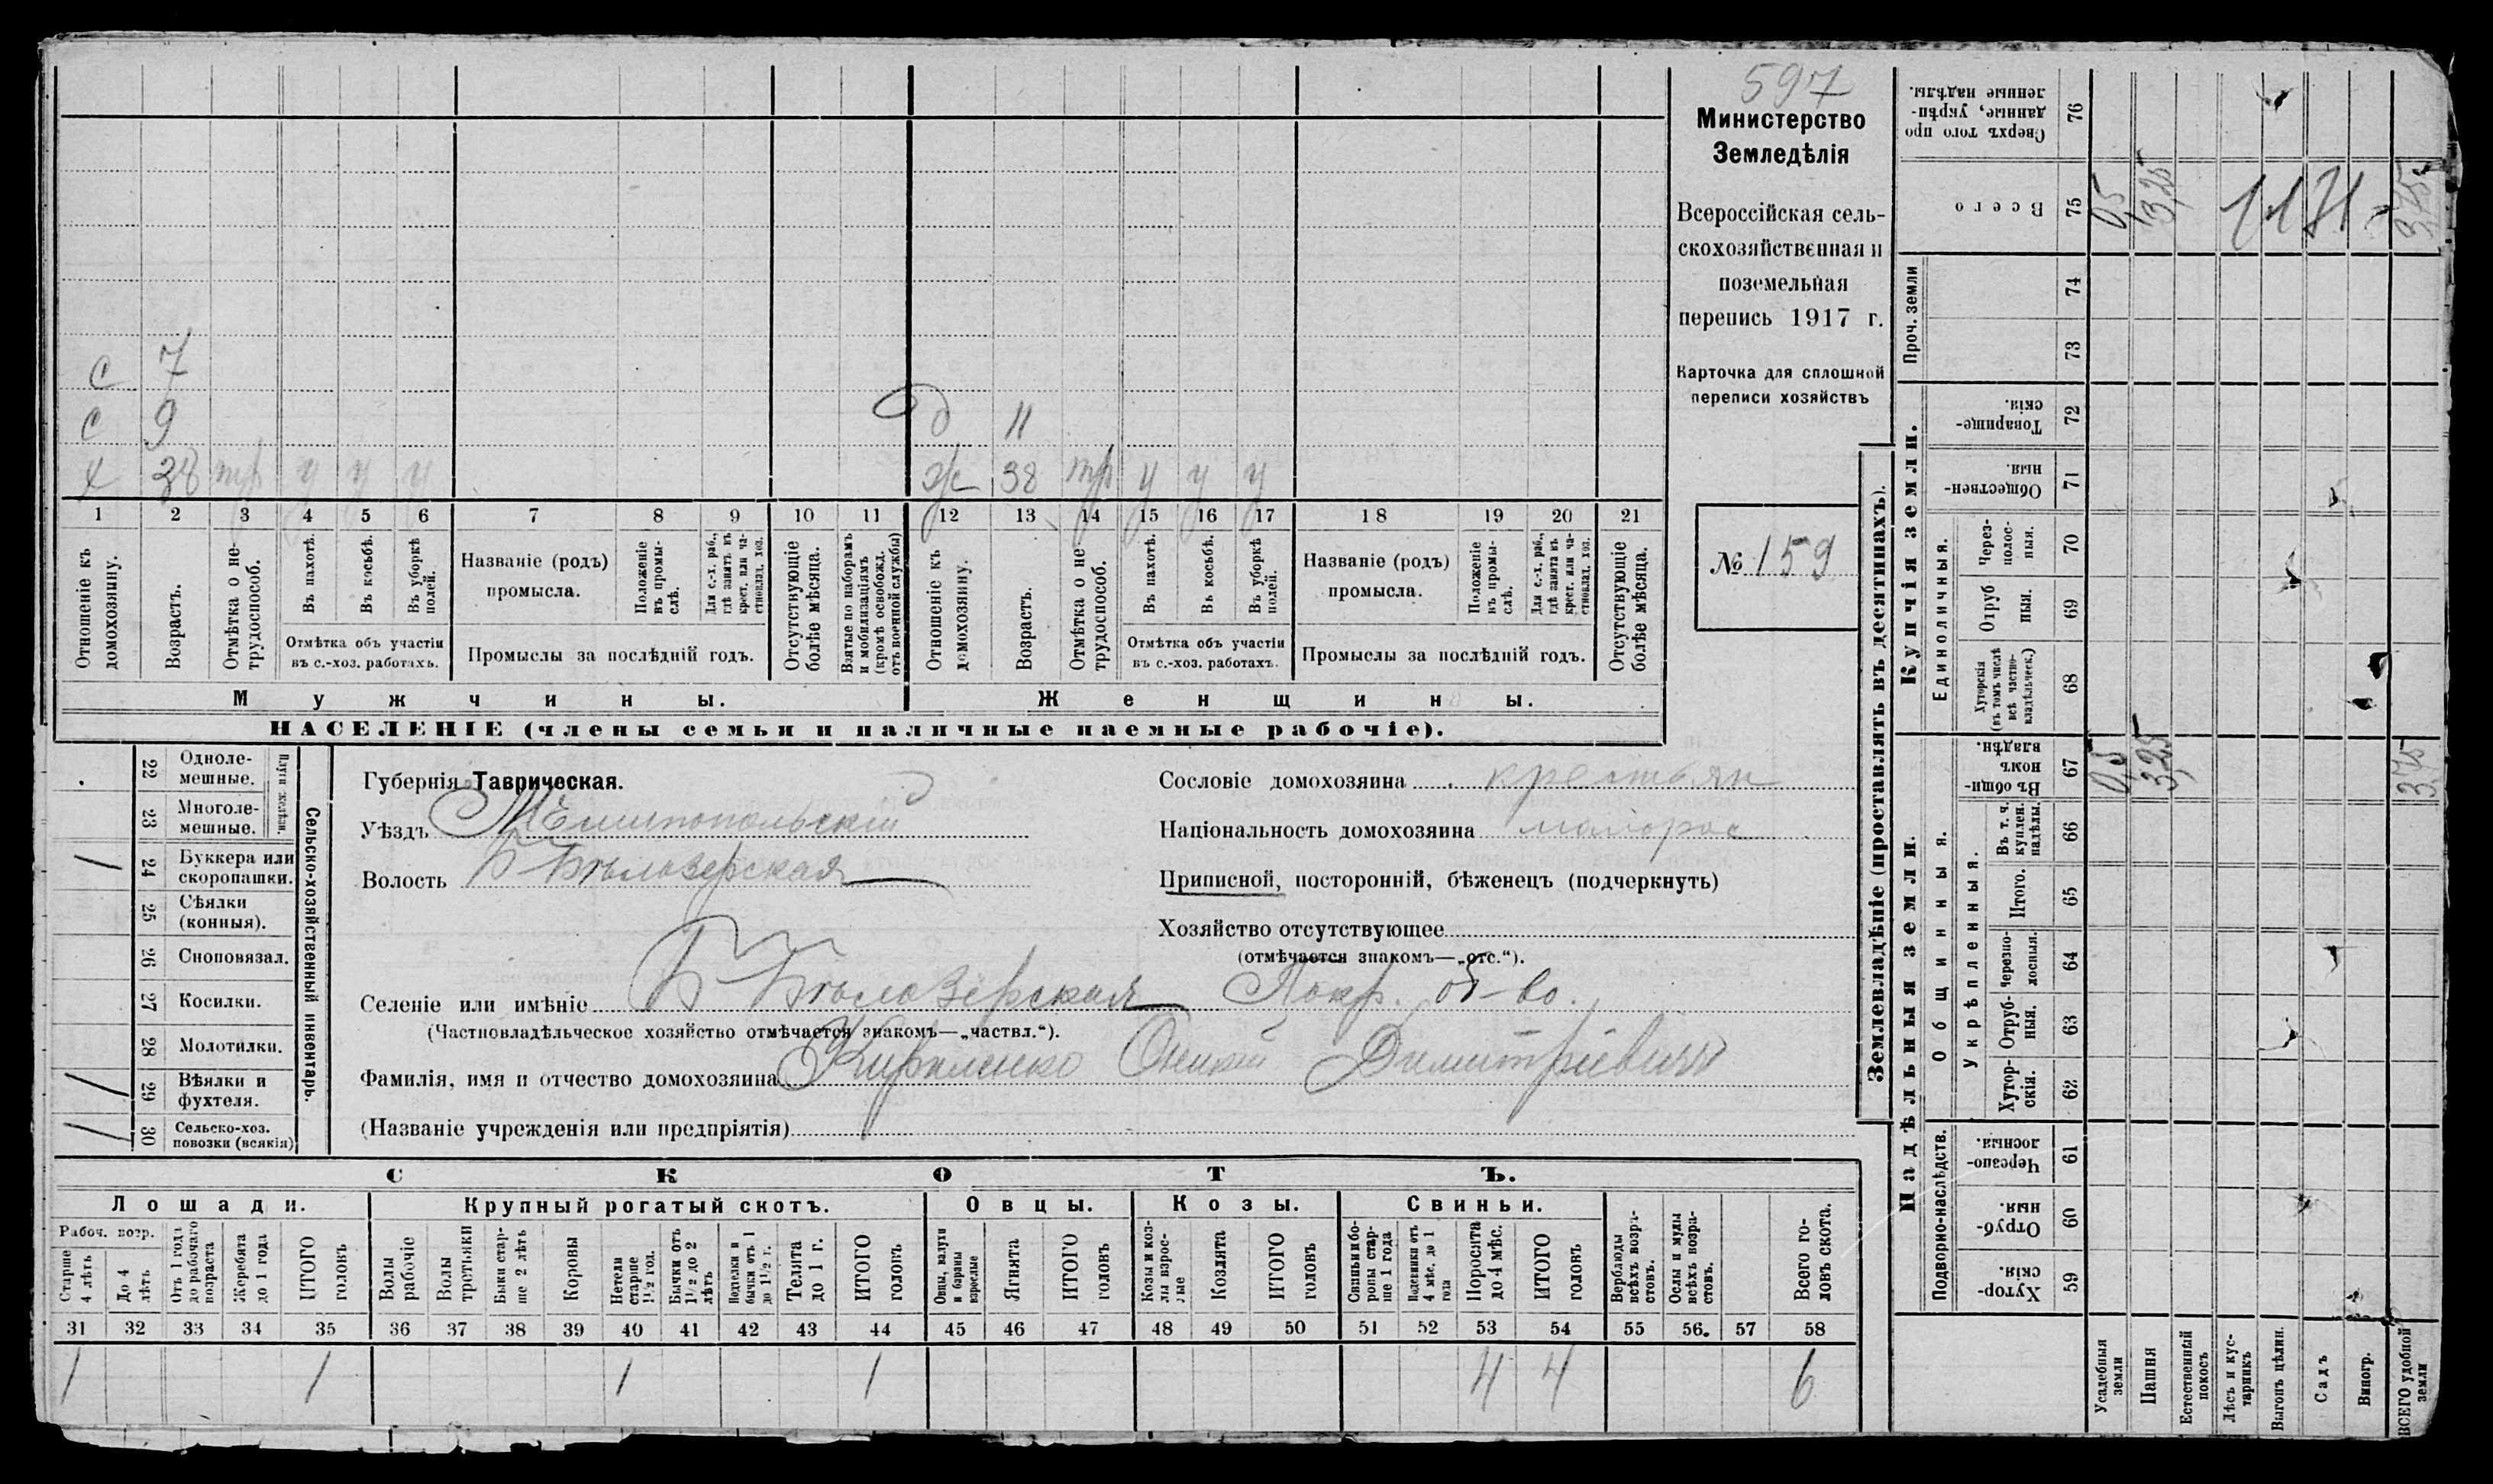 597
Министерство
Земледѣлія
Всероссійская сель-
скохозяйственная и
поземельная
перепись 1917 г.
Карточка для сплошной
переписи хозяйствъ
№ 159
с 7
с 9
д 11
х 38 тр у у у
ж 38 тр у у у
1 2 3 4 5 6 7 8 9 10 11 12 13 14 15 16 17 18 19 20 21
Отношеніе къ
домохозяину.
Возрастъ.
Отмѣтка о не-
трудоспособ.
Въ пахотѣ.
Въ косьбѣ.
Въ уборкѣ
полей.
Отмѣтка объ участіи
въ с.-хоз. работахъ.
Названіе (родъ)
промысла.
Положеніе
въ промы-
слѣ.
Для с.-х. раб.,
гдѣ занятъ въ
крест. или ча-
стновлад. хоз.
Промыслы за послѣдній годъ.
Отсутствующіе
болѣе мѣсяца.
Взятые по наборамъ
и мобилизаціямъ
(кромѣ освобожд.
отъ военной службы)
Отношеніе къ
домохозяину.
Возрастъ.
Отмѣтка о не
трудоспособ.
Въ пахотѣ.
Въ косьбѣ.
Въ уборкѣ
полей.
Отмѣтка объ участіи
въ с.-хоз. работахъ.
Названіе (родъ)
промысла.
Положеніе
въ промы-
слѣ.
Для с.-х. раб.,
гдѣ занята въ
крест. или ча-
стновлад. хоз.
Промыслы за послѣдній годъ.
Отсутствующіе
болѣе мѣсяца.
Мужчины.
Женщины.
НАСЕЛЕНІЕ (члены семьи и наличные наемные рабочіе).
Сельско-хозяйственный инвентарь.
Плуги желѣзн.
22 Одноле-
мешные.
23 Многоле-
мешные.
/ 24 Буккера или
скоропашки.
25 Сѣялки
(конныя).
26 Сноповязал.
27 Косилки.
28 Молотилки.
/ 29 Вѣялки и
фухтеля.
/ 30 Сельско-хоз.
повозки (всякія)
Губернія Таврическая.
Уѣздъ Мелитопольскій
Волость Б-Бѣлозерская
Сословіе домохозяина крестьян
Національность домохозяина малорос
Приписной, посторонній, бѣженецъ (подчеркнуть)
Хозяйство отсутствующее
(отмѣчается знакомъ—„отс.“).
Селеніе или имѣніе Б-Бѣлозерская Покр. об-во.
(Частновладѣльческое хозяйство отмѣчается знакомъ—„частвл.“).
Фамилія, имя и отчество домохозяина Димитріевичъ
(Названіе учрежденія или предпріятія)
СКОТЪ.
Лошади.
Крупный рогатый скотъ.
Овцы.
Козы.
Свиньи.
Рабоч. возр.
Старше
4 лѣтъ
До 4
лѣтъ
Отъ 1 года
до рабочаго
возраста
Жеребята
до 1 года
ИТОГО
головъ
Волы
рабочіе
Волы
третьяки
Быки стар-
ше 2 лѣтъ
Коровы
Нетели
старше
1½ год.
Бычки отъ
1½ до 2
лѣтъ
Подтелки и
бычки отъ 1
до 1½ г.
Телята
до 1 г.
ИТОГО
головъ
Овцы, валухи
и бараны
взрослые
Ягнята
ИТОГО
головъ
Козы и коз-
лы взрос-
лые
Козлята
ИТОГО
головъ
Свиньи и бо-
ровы стар-
ше 1 года
Подсвинки отъ
4 мѣс. до 1
года
Поросята
до 4 мѣс.
ИТОГО
головъ
Верблюды
всѣхъ возра-
стовъ.
Ослы и мулы
всѣхъ возра-
стовъ.
Всего го-
ловъ скота.
31 32 33 34 35 36 37 38 39 40 41 42 43 44 45 46 47 48 49 50 51 52 53 54 55 56. 57 58
1 1 1 1 4 4 6
Землевладѣніе (проставлять въ десятинахъ).
Сверхъ того про
данные, укрѣп-
ленные надѣлы.
76
Всего
75
0,5
3,25
3,75
Проч. земли
74
73
Купчія земли.
Товарище-
скія.
72
Обществен-
ныя.
71
Единоличныя.
Через-
полос-
ныя.
70
Отруб
ныя.
69
Хуторскія
(въ томъ числѣ
всѣ частно-
владѣльческ.)
68
Надѣльныя земли.
Общинныя.
Въ общи-
номъ
владѣн.
67
0,5
3,25
3,75
Укрѣпленныя.
Въ т. ч.
куплен.
надѣлы.
66
Итого.
65
Черезпо-
лосныя.
64
Отруб-
ныя.
63
Хутор-
скія.
62
Подворно-наслѣдств.
Черезпо-
лосныя.
61
Отруб-
ныя.
60
Хутор-
скія.
59
Усадебныя
земли
Пашня
Естественный
покосъ
Лѣсъ и кус-
тарникъ
Выгонъ цѣлин.
Садъ
Виногр.
ВСЕГО удобной
земли